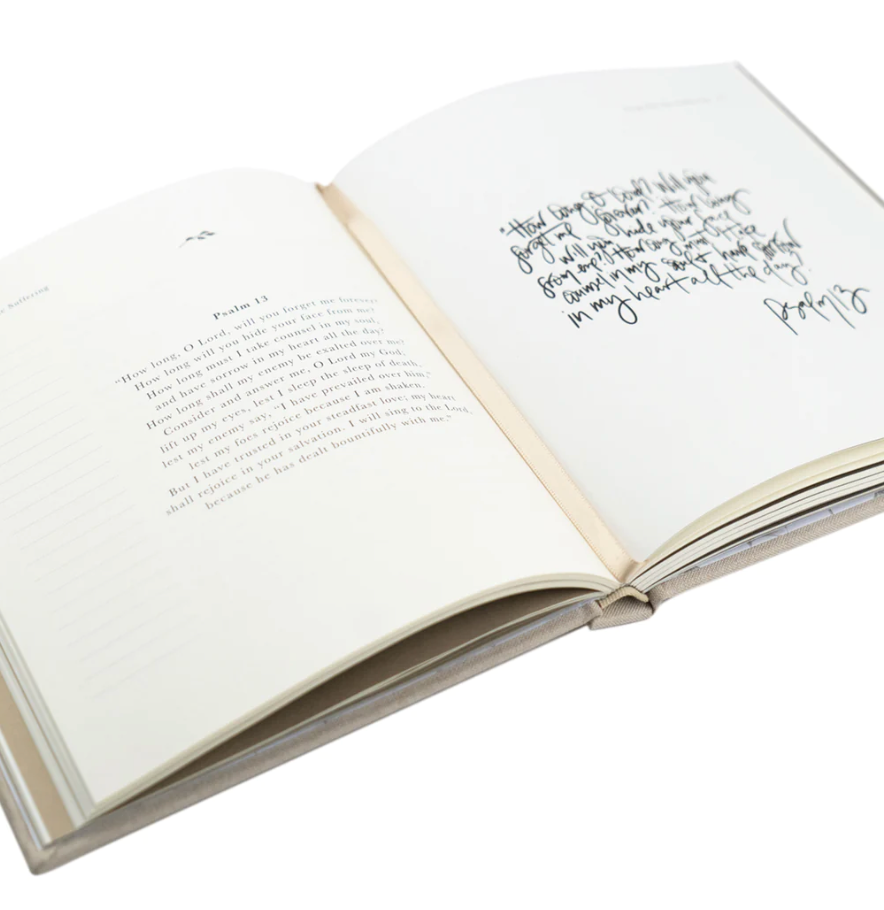 Suffering
Psalm 13
“How long, O Lord, will you forget me forever?
How long will you hide your face from me?
How long must I take counsel in my soul,
and have sorrow in my heart all the day?
How long shall my enemy be exalted over me?
Consider and answer me, O Lord my God;
lift up my eyes, lest I sleep the sleep of death,
lest my enemy say, “I have prevailed over him,”
lest my foes rejoice because I am shaken.
But I have trusted in your steadfast love; my heart
shall rejoice in your salvation. I will sing to the Lord,
because he has dealt bountifully with me.”
"How long O Lord? Will you
forget me forever? How long
will you hide your face
from me? How long must I take
counsel in my soul & have sorrow
in my heart all the day."
Psalm 13